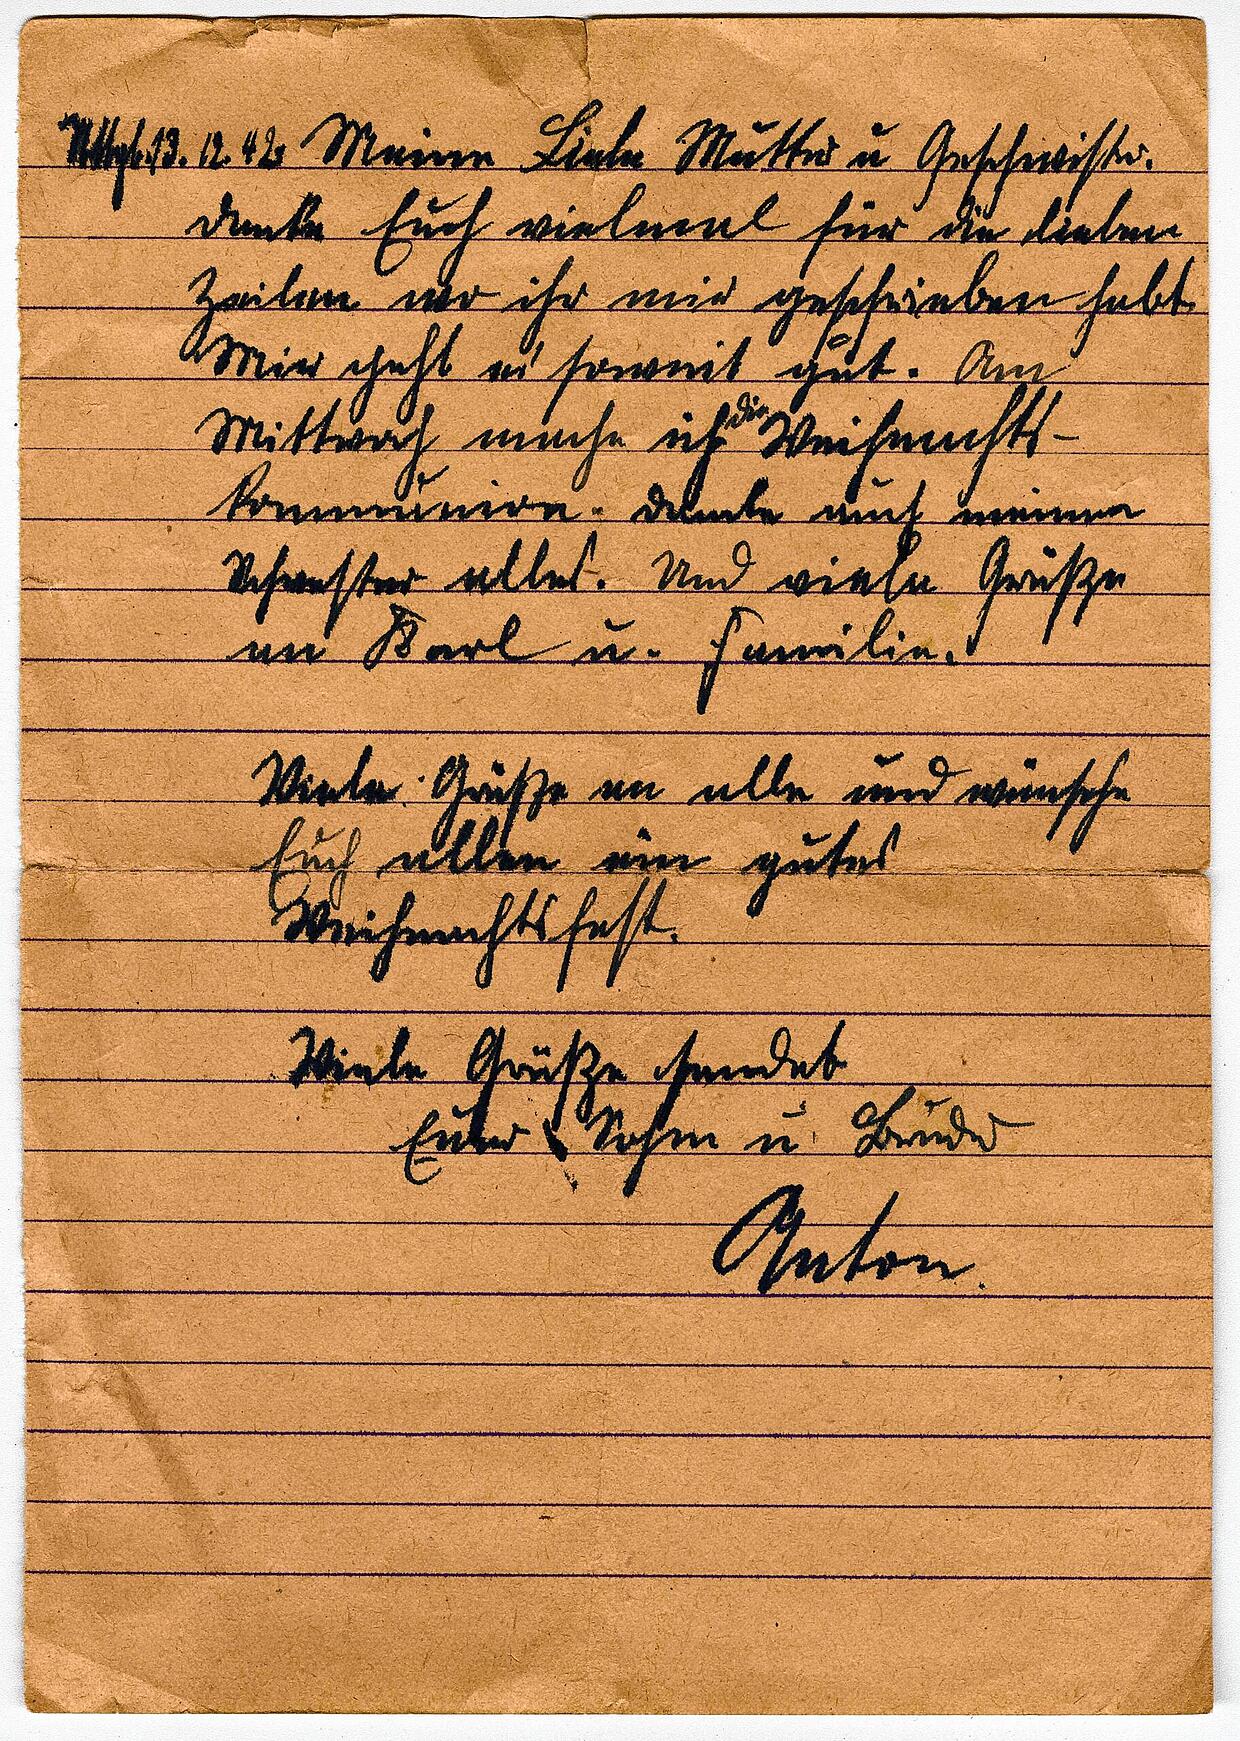 13. 12. 42. Meine Liebe Mutter u Geschwister.
Danke Euch vielmal für die lieben
Zeilen wo ihr mir geschrieben habt
Mir geht es soweit gut. Am
Mittwoch mache ich die Weihnachts-
kommunion. Danke auch meinen
Schwester alles. Und viele Grüße
an Karl u. Familie.
Viele Grüße an alle und wünsche
Euch allen ein gutes
Weihnachtsfest.
Viele Grüße sendet
Euer Sohn u. Bruder
Anton.